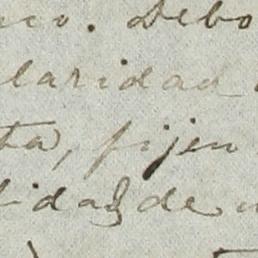 Debo
laridad
ta, fijen
tidad de